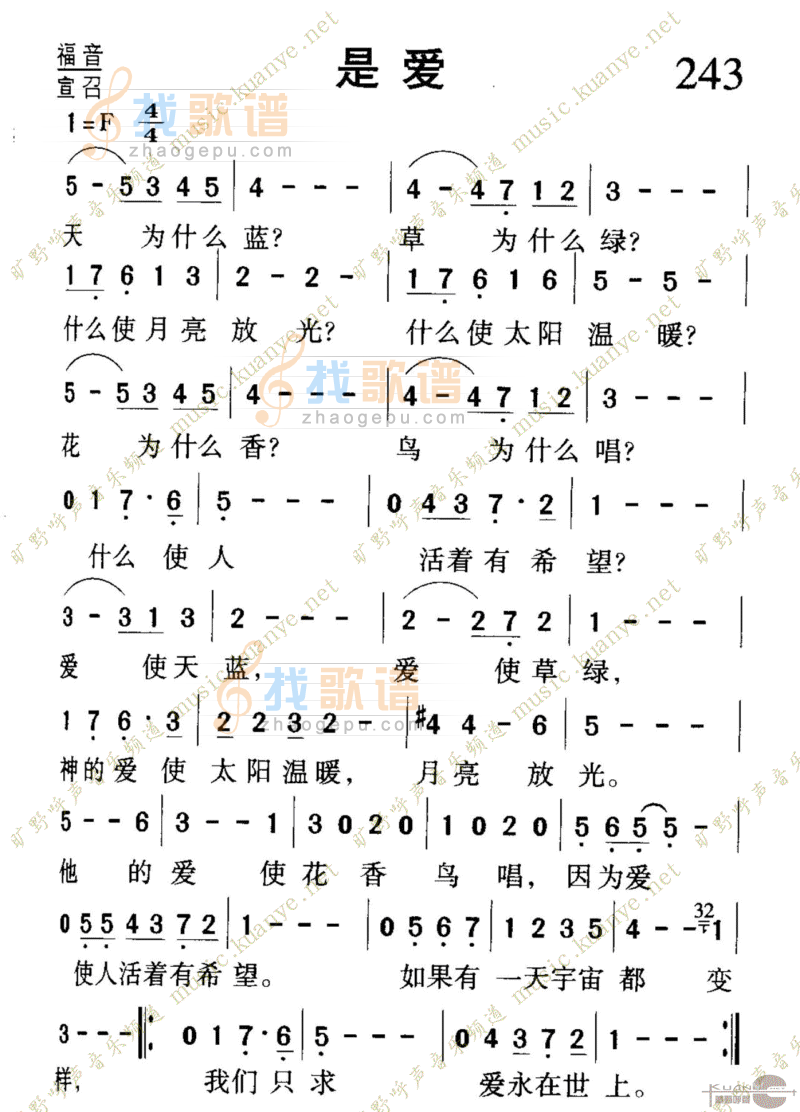 福音
宣召
是爱
243
1=F 4/4
5 - 5 3 4 5 | 4 - - - | 4 - 4 7 1 2 | 3 - - - |
天 为什么蓝? 草 为什么绿?
1 7 6 1 3 | 2 - 2 - | 1 7 6 1 6 | 5 - 5 - |
什么使月亮放光? 什么使太阳温暖?
5 - 5 3 4 5 | 4 - - - | 4 - 4 7 1 2 | 3 - - - |
花 为什么香? 鸟 为什么唱?
0 1 7 · 6 | 5 - - - | 0 4 3 7 · 2 | 1 - - - |
什么使人 活着有希望?
3 - 3 1 3 | 2 - - - | 2 - 2 7 2 | 1 - - - |
爱 使天蓝, 爱 使草绿,
1 7 6 · 3 | 2 2 3 2 - | #4 4 - 6 | 5 - - - |
神的爱使太阳温暖, 月亮放光。
5 - - 6 | 3 - - 1 | 3 0 2 0 | 1 0 2 0 | 5 6 5 5 - |
他的爱使花香鸟唱, 因为爱
0 5 5 4 3 7 2 | 1 - - - | 0 5 6 7 | 1 2 3 5 | 4 - - 32 1 |
使人活着有希望。 如果有一天宇宙都变
3 - - - :|: 0 1 7 · 6 | 5 - - - | 0 4 3 7 2 | 1 - - - :|
样, 我们只求 爱永在世上。
找歌谱
zhaogepu.com
找歌谱
zhaogepu.com
找歌谱
zhaogepu.com
旷野呼声音乐频道 music.kuanye.net